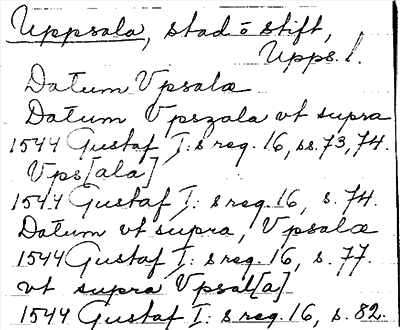 Uppsala, stad o stift,
Upps. l.
Datum Vpsalæ
Datum Vpszala vt supra
1544 Gustaf I:s reg. 16, ss. 73, 74.
Vps[ala]
1544 Gustaf I:s reg. 16, s. 74.
Datum vt supra, Vpsalæ
1544 Gustaf I:s reg. 16, s. 77.
vt supra Vpsal[a]
1544 Gustaf I:s reg. 16, s. 82.